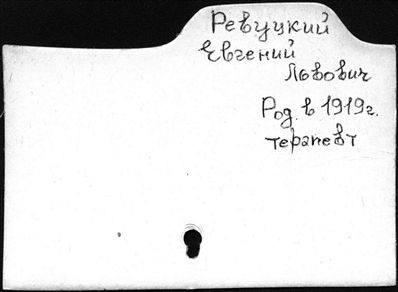 Ревуцкий
Евгений
Львович
Род. в 1919г.
терапевт